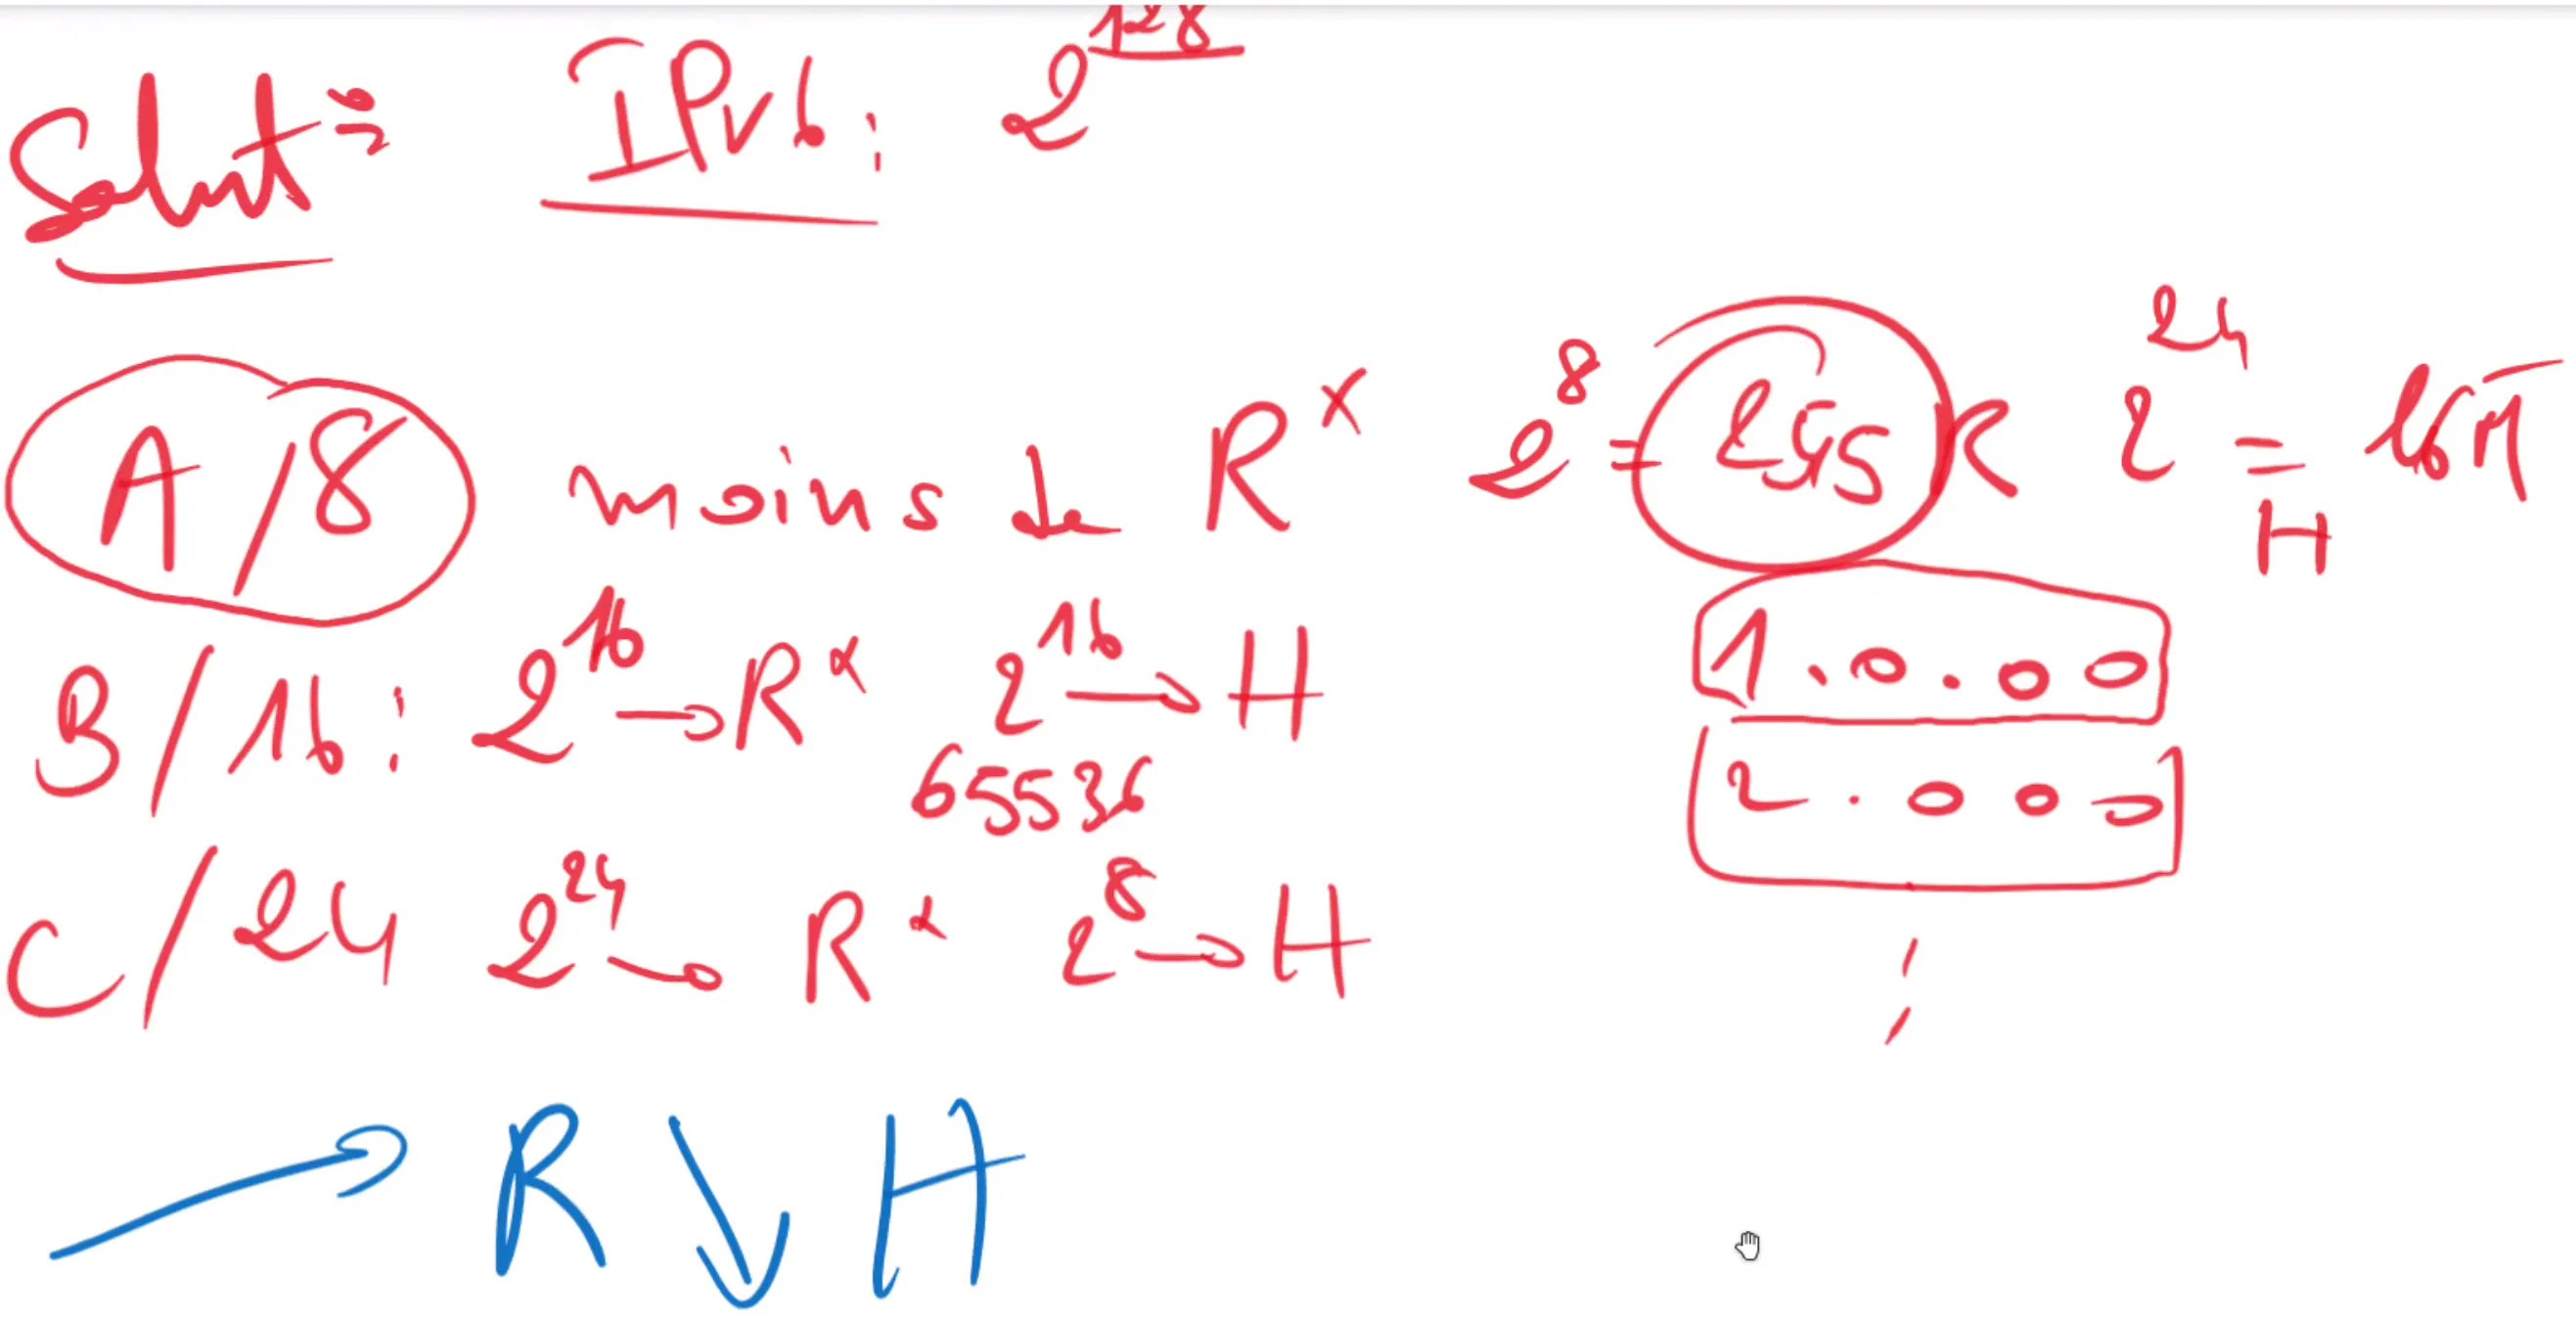 Solut° : IPv6 : 2^128
A/8 moins de R^x 2^8 = 255 R 2^24 = 16M
H
B/16 : 2^16 → R^x 2^16 → H
65536
1.0.00
2.000
C/24 2^24 → R^x 2^8 → H
→ R ↓ H